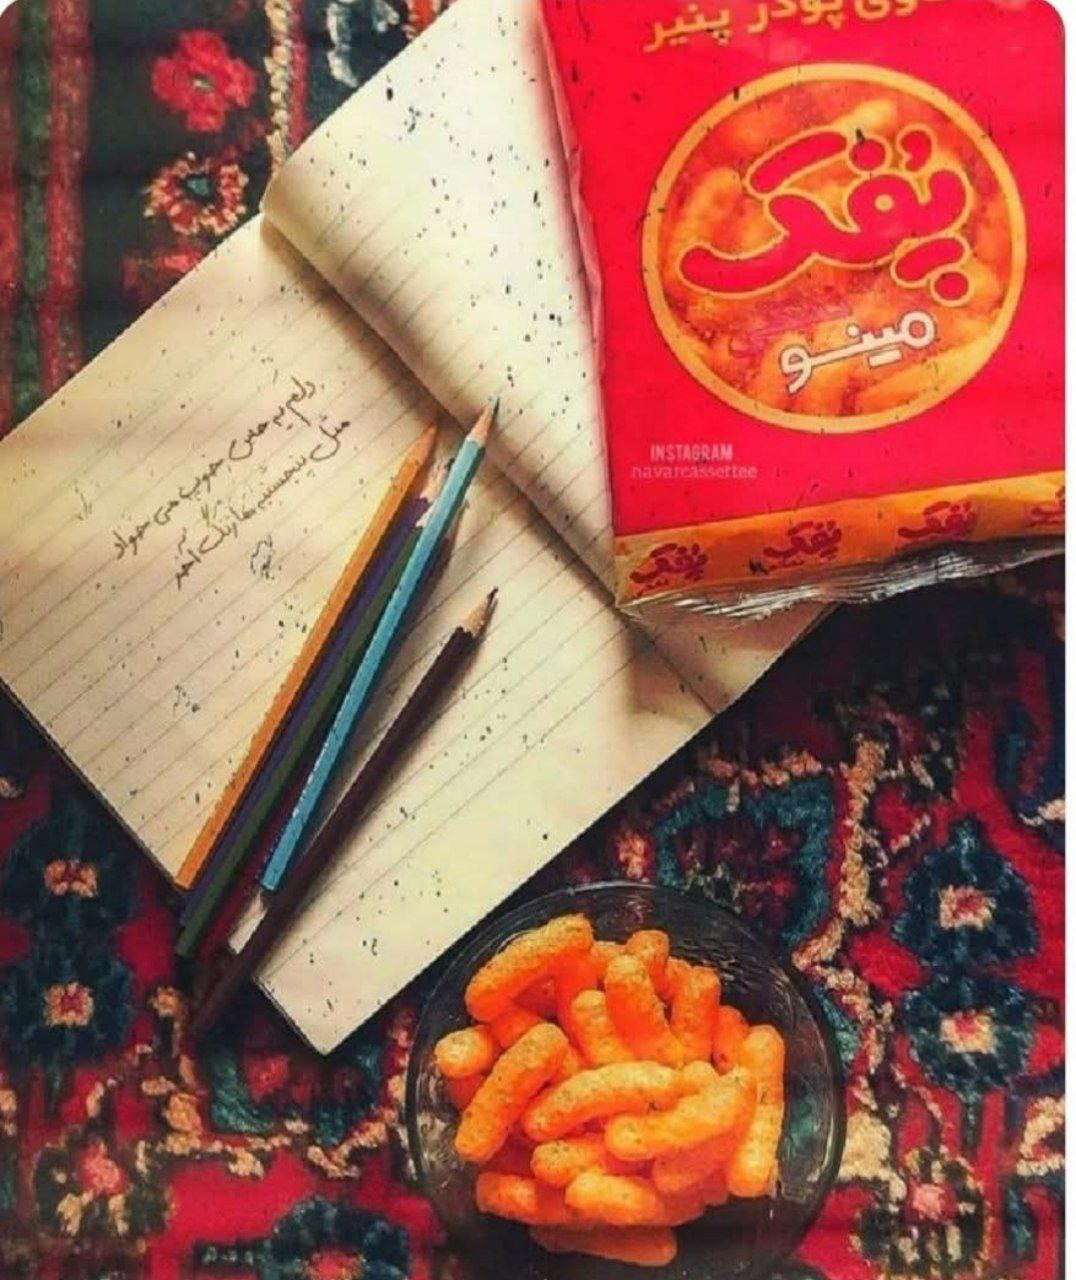 حاوی پودر پنیر
پفک
مینو
INSTAGRAM
navarcassettee
پفک
پفک
پفک
دلم یه حس خوب می خواد
مثل پنجشنبه ها زنگ آخر